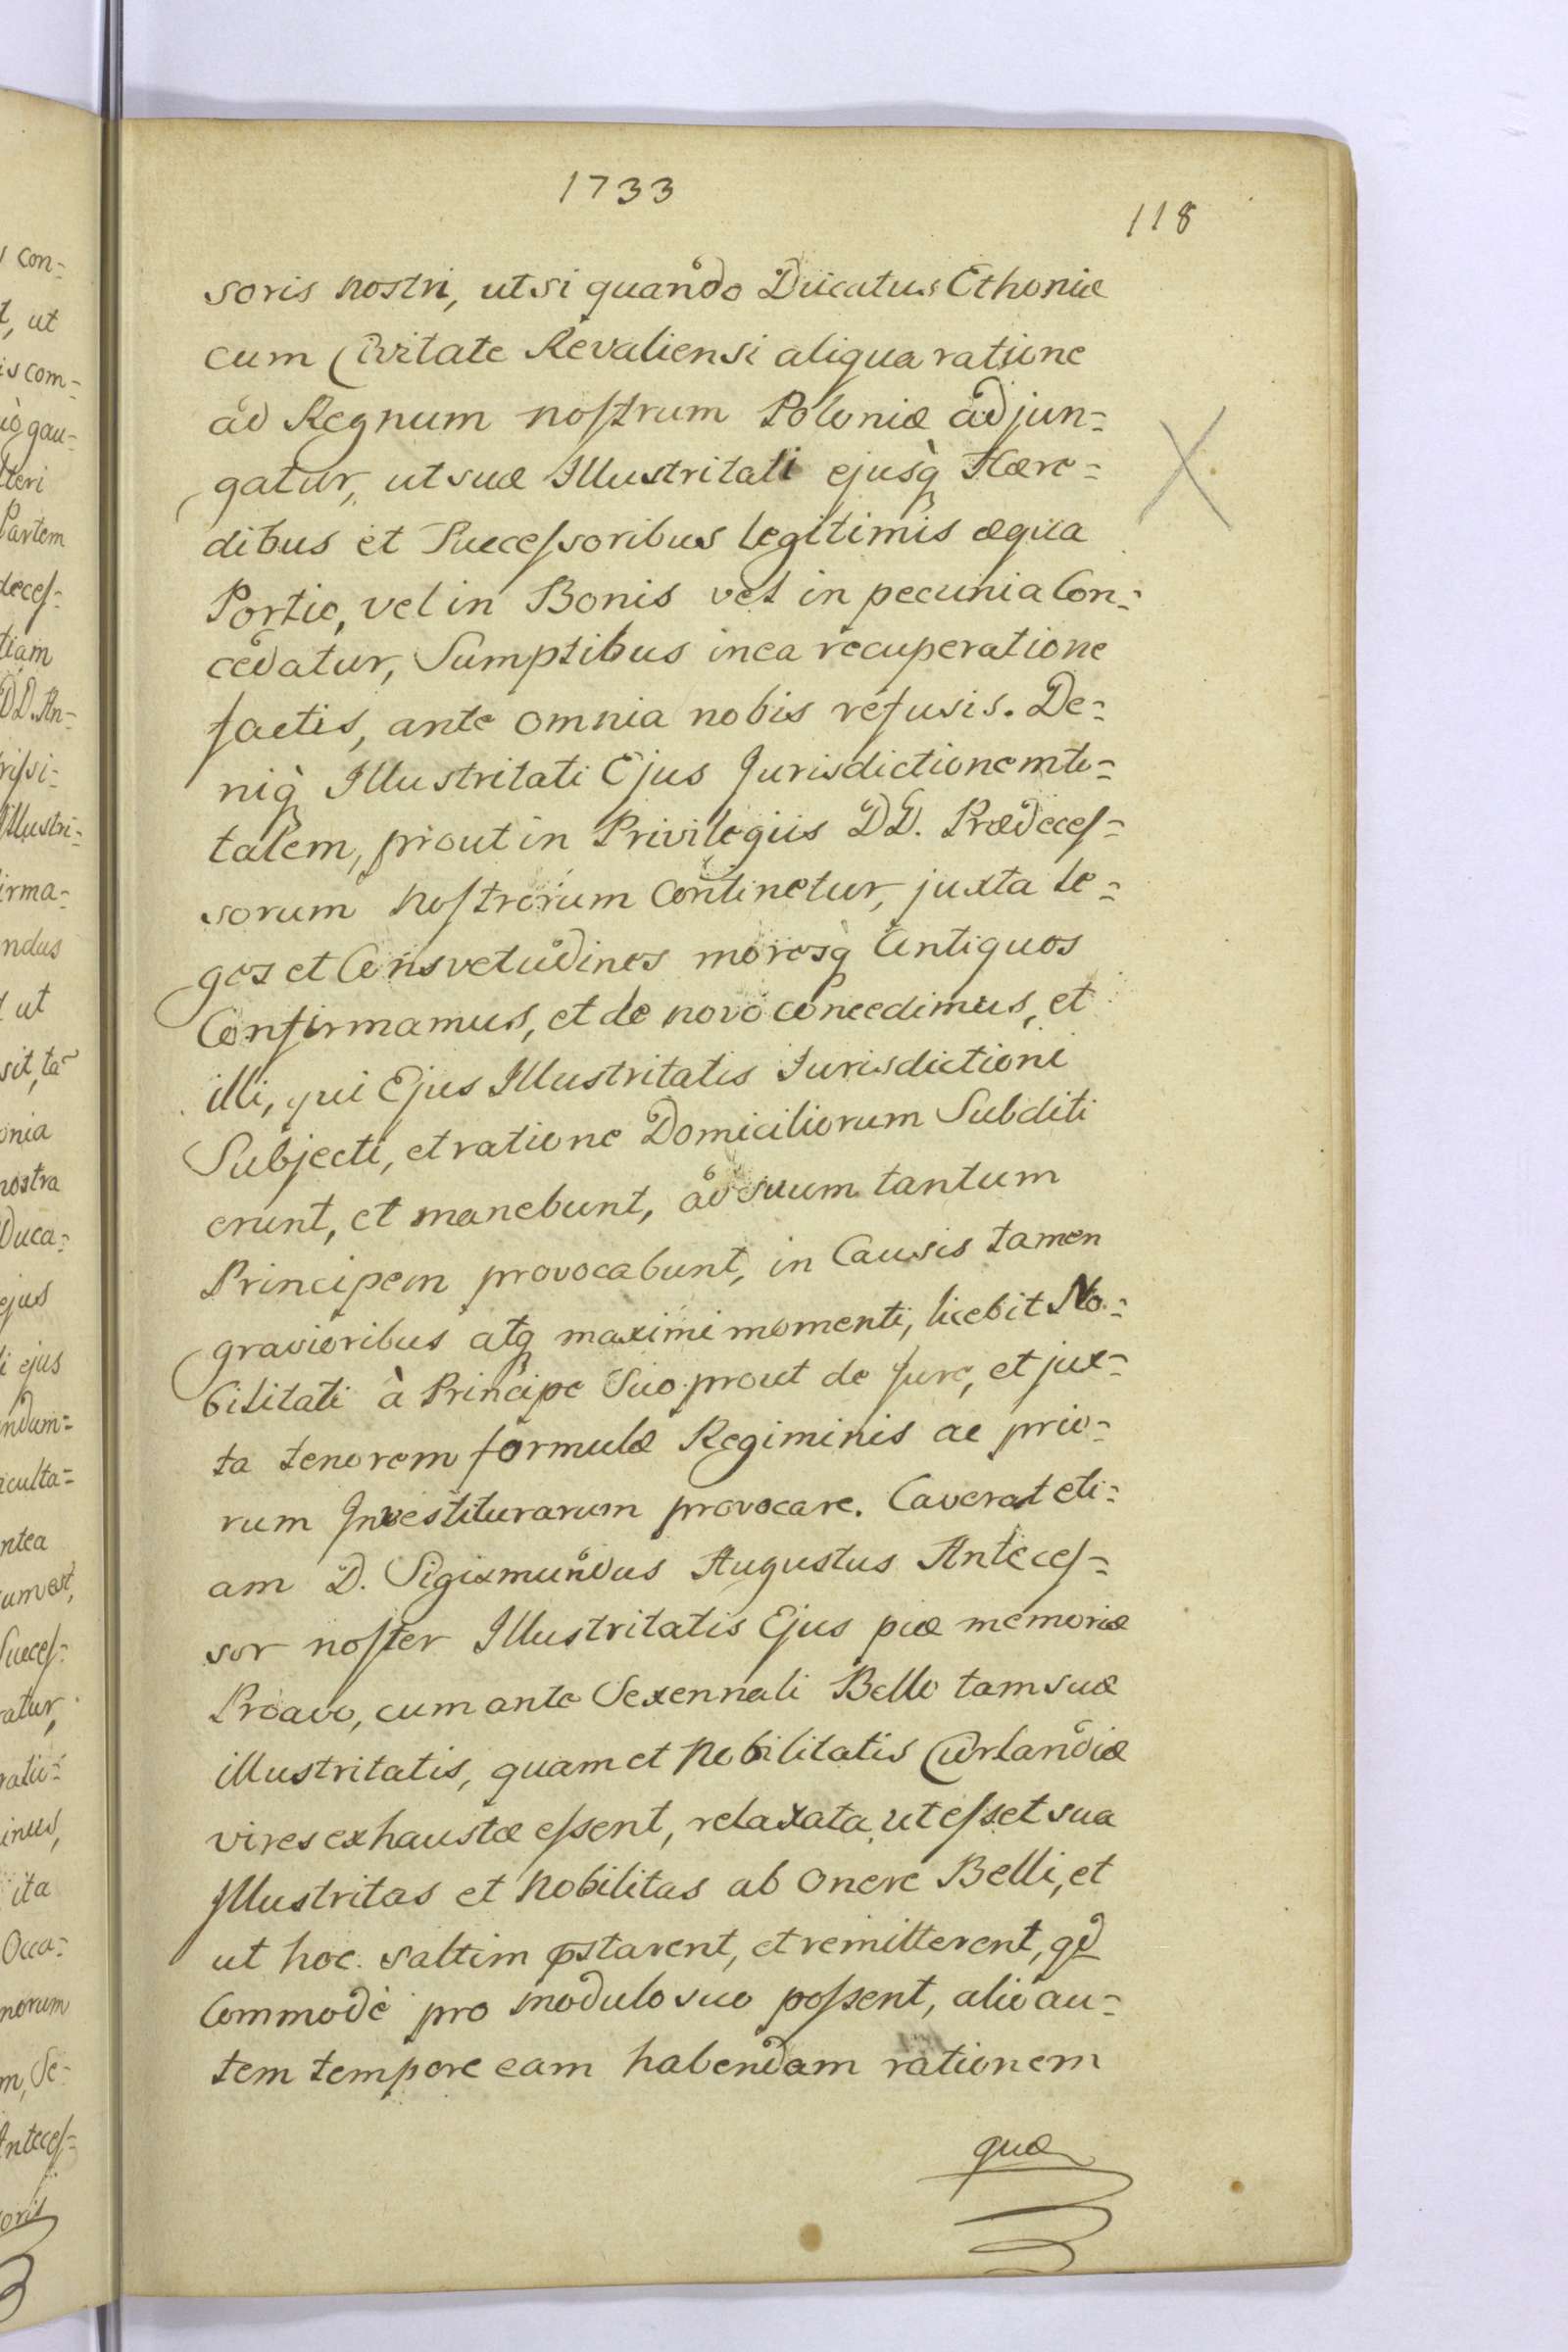 1733
118
soris nostri, ut si quando Ducatus Ethoniæ
cum Civitate Revaliensi aliqua ratione
ad Regnum noſtrum Poloniæ adjun=
gatur, ut suæ Illustritati ejusq̀ Hære=
dibus et Succeſsoribus legitimis æqua
Portio, vel in Bonis vel in pecunia Con=
cedatur, Sumptibus in ea recuperatione
factis, ante omnia nobis refusis. De=
niq̀ Illustritati Ejus Jurisdictionem to=
talem, prout in Privilegiis DD. Prædeceſ=
sorum noſtrorum Continetur, juxta le=
ges et Consvetudines moresq̀ Antiquos
Confirmamus, et de novo concedimus, et
illi, qui Ejus Illustritatis Jurisdictioni
Subjecti, et ratione Domiciliorum Subditi
erunt, et manebunt, ad suum tantum
Principem provocabunt, in Causis tamen
gravioribus atq maximi momenti, licebit No=
bilitati à Principe Suo prout de Jure, et jux=
ta tenorem formulæ Regiminis ac prio=
rum Investiturarum provocare. Caverat eti=
am D. Sigismundus Augustus Anteceſ=
sor noſter Illustritatis Ejus piæ memoriæ
Proavo, cum ante Sexennali Bello tam suæ
illustritatis, quam et Nobilitatis Curlandiæ
vires exhaustæ eſsent, relaxata ut eſset sua
Illustritas et Nobilitas ab Onere Belli, et
ut hoc saltim pstarent, et remitterent, qd
Commodè pro modulo suo poſsent, alio au=
tem tempore eam habendam rationem
quæ
con=
, ut
is com=
iò gau=
lteri
Partem
deceſ=
tiam
DD. An=
riſsi=
Illustri=
irma=
ndus
ut
sit, ta~
onia
nostra
Duca=
ejus
i ejus
ndum=
aculta=
ntea
um est,
Succeſ=
atur,
ratio=
inus,
ita
Occa=
norum
m, Se=
Anteceſ=
oris